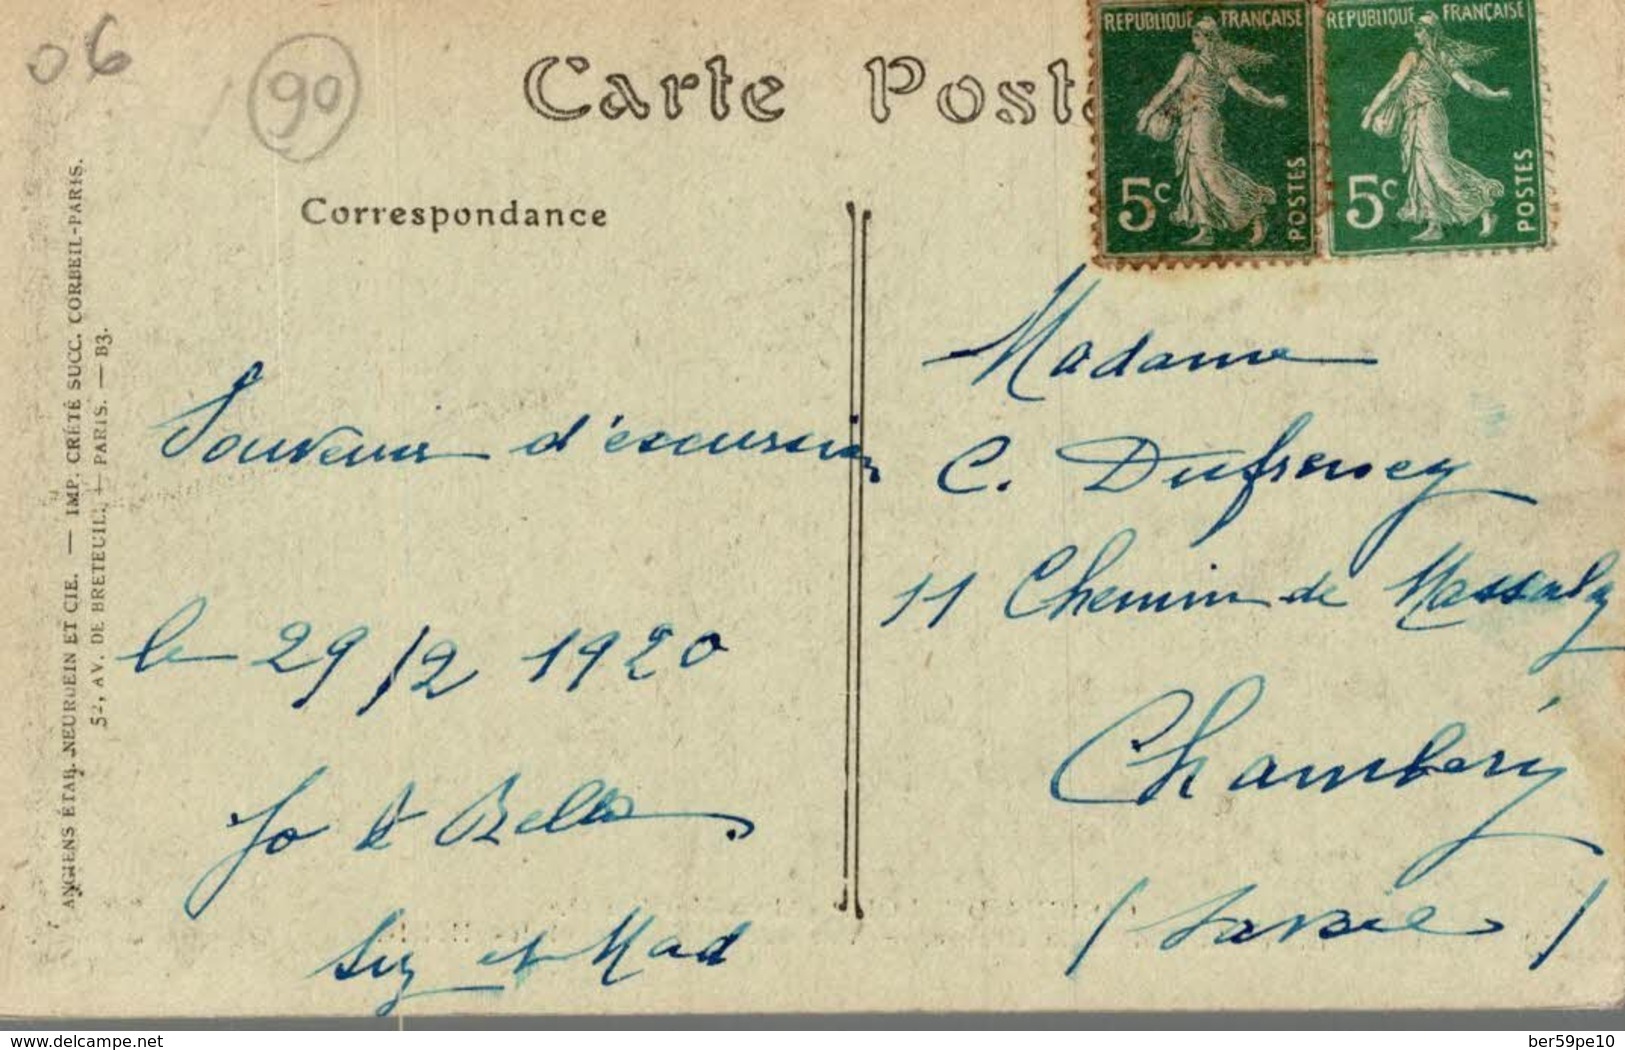 06
90
Carte Posta
RÉPUBLIQUE FRANÇAISE
5c
POSTES
RÉPUBLIQUE FRANÇAISE
5c
POSTES
Correspondance
Souvenir d'excursion
le 29/2 1920
Jo & Bella
Suz et Mad
Madame
C. Dufrency
11 Chemin de
Chambéry
(Savoie)
ANCIENS ÉTAB. NEURDEIN ET CIE. — IMP. CRÉTÉ SUCC. CORBEIL-PARIS.
52, AV. DE BRETEUIL, PARIS. — B3.
www.delcampe.net
ber59pe10